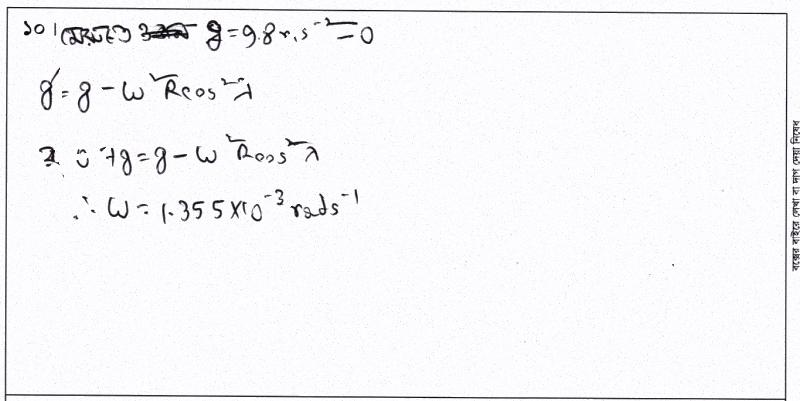 ১০। মেরুতে g = 9.8 m s⁻² = 0
g' = g - ω²Rcos²λ
g = g - ω²Rcos²λ
∴ ω = 1.355×10⁻³ rads⁻¹
বক্সের বাইরে লেখা বা দাগ দেয়া নিষেধ